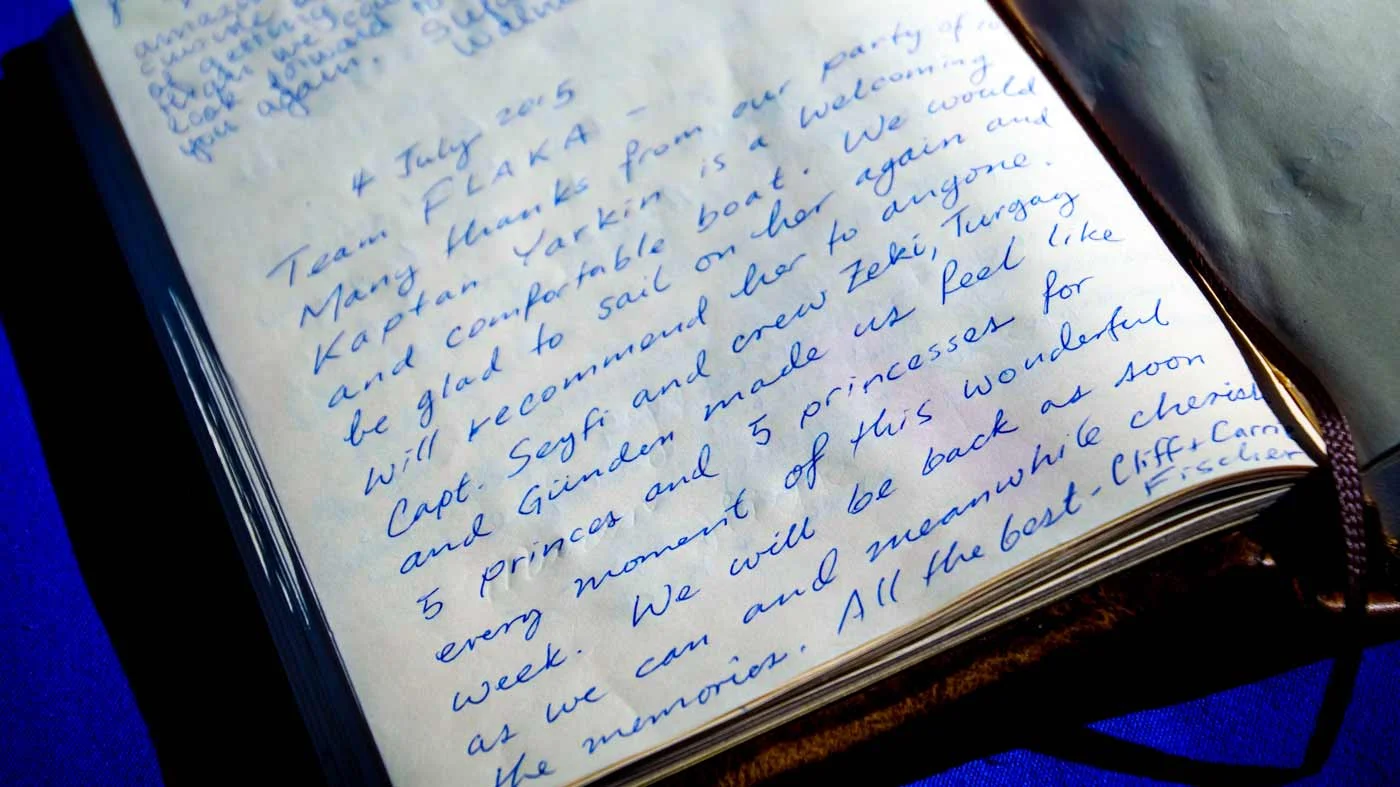 amazing
cuisine
of getting
Look forward to
you again,
4 July 2015
Team FLAKA -
Many thanks from our party of
Kaptan Yarkin is a welcoming
and comfortable boat. We would
be glad to sail on her again and
will recommend her to anyone.
Capt. Seyfi and crew Zeki, Turgay
and Günden made us feel like
5 princes and 5 princesses for
every moment of this wonderful
week. We will be back as soon
as we can and meanwhile cherish
the memories. All the best - Cliff + Carrie
Fischer